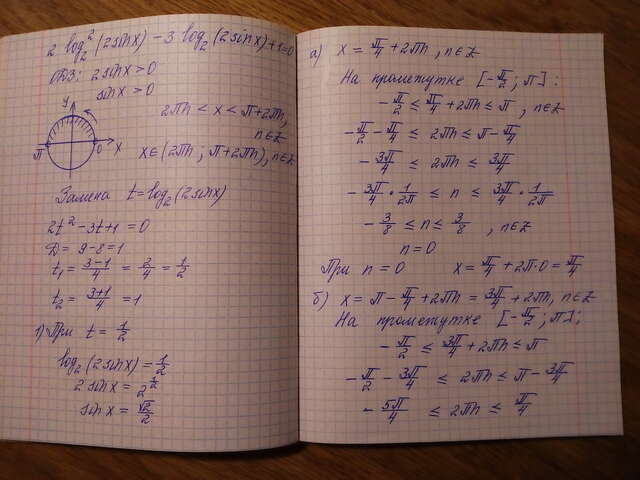 2 log₂² (2sinx) − 3 log₂ (2sinx) + 1 = 0
ОДЗ: 2sinx > 0
sinx > 0
2πn < x < π+2πn,
n∈Z
x∈(2πn ; π+2πn), n∈Z
y
π
0
x
Замена t = log₂(2sinx)
2t² − 3t + 1 = 0
D = 9 − 8 = 1
t₁ = (3−1)/4 = 2/4 = 1/2
t₂ = (3+1)/4 = 1
1) При t = 1/2
log₂ (2sinx) = 1/2
2 sinx = 2^(1/2)
sinx = √2/2
а) x = π/4 + 2πn, n∈Z
На промежутке [−π/2 ; π] :
−π/2 ≤ π/4 + 2πn ≤ π , n∈Z
−π/2 − π/4 ≤ 2πn ≤ π − π/4
− 3π/4 ≤ 2πn ≤ 3π/4
− 3π/4 · 1/2π ≤ n ≤ 3π/4 · 1/2π
− 3/8 ≤ n ≤ 3/8 , n∈Z
n = 0
При n = 0 x = π/4 + 2π·0 = π/4
б) x = π − π/4 + 2πn = 3π/4 + 2πn, n∈Z
На промежутке [−π/2 ; π] :
− π/2 ≤ 3π/4 + 2πn ≤ π
−π/2 − 3π/4 ≤ 2πn ≤ π − 3π/4
− 5π/4 ≤ 2πn ≤ π/4